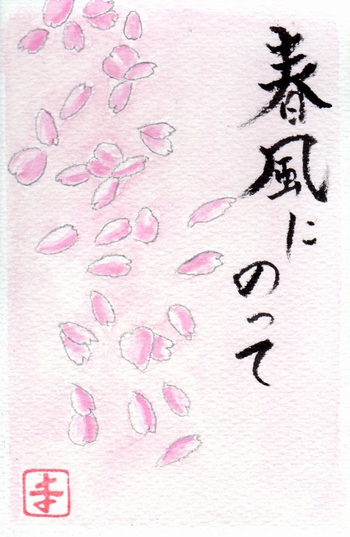 春風に
のって